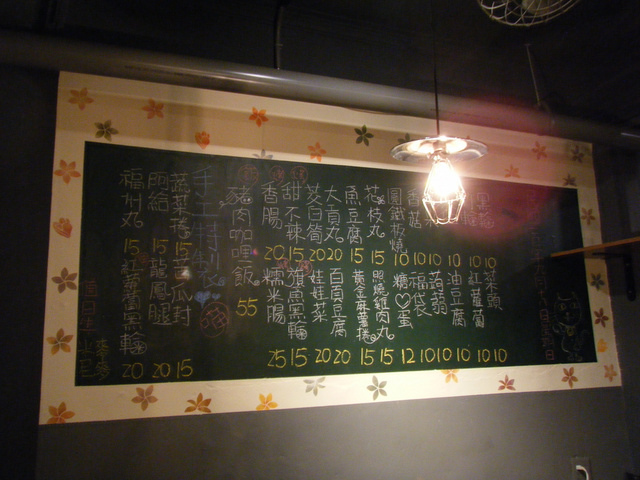 10 菜頭 10
10 紅蘿蔔 10
10 油豆腐 10
10 蒟蒻 10
香菇 10 福袋 10
圓鐵板燒 10 糖♡蛋 12
花枝丸 15 照燒雞肉丸 15
魚豆腐 15 黃金麻薯捲 15
大貢丸 20 百頁豆腐 20
茭白筍 20 娃娃菜 20
甜不辣 15 旗魚黑輪 15
香腸 20 糯米腸 25
豬肉咖哩飯 55
手工特製
蔬菜捲 15 苦瓜封 15
15 龍鳳腿 20
福州丸 15 紅蘿蔔黑輪 20